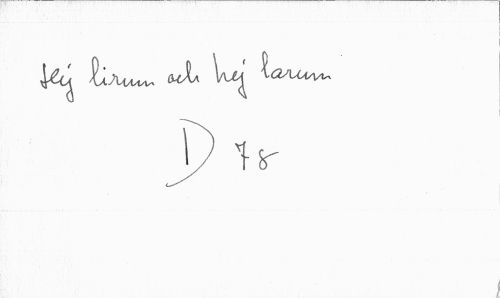 Hej lirum och hej larum
D 78